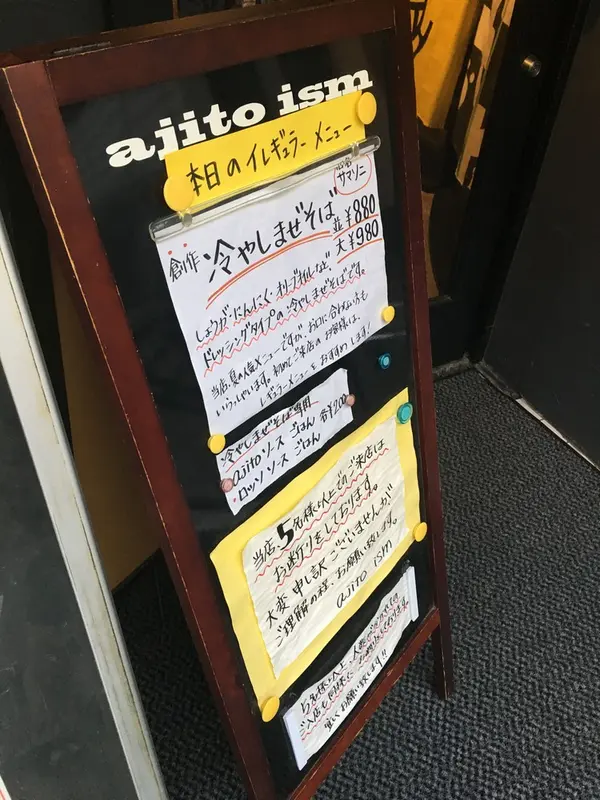 ajito ism
本日のイレギュラーメニュー
サマソニ
創作 冷やしまぜそば
並¥880
大¥980
しょうが・にんにく・オリーブオイルなど、
ドレッシングタイプの冷やしまぜそばです。
当店、夏の人気メニューですが、お口に合わない方も
いらっしゃいます。初めてご来店のお客様は、
レギュラーメニューをおすすめします!
冷やしまぜそば専用
ajitoソース ごはん 各¥200
ロッソソース ごはん
当店5名様以上でのご来店は
お断りをしております。
大変申し訳ございませんが
ご理解の程、お願い致します。
ajito ism
5名様以上、人数を分けての
ご入店も同様にお断りしております。
宜しくお願い致します!!